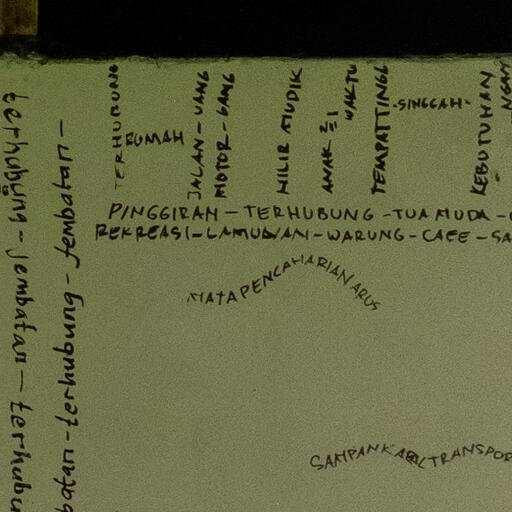 terhubung - jembatan - terhubu
gatan - terhubung - jembatan -
TERHUBUNG
RUMAH
JALAN - UANG
MOTOR - GANG
HILIR MUDIK
ANAK 2
WAKTU
TEMPATTINGG
- SINGGAH -
KEBUTUHAN
NGAN
PINGGIRAN - TERHUBUNG - TUA MUDA -
REKREASI - LAMUNAN - WARUNG - CAFE - SA
MATAPENCAHARIAN ARUS
SAMPAN KAPAL TRANSPOR